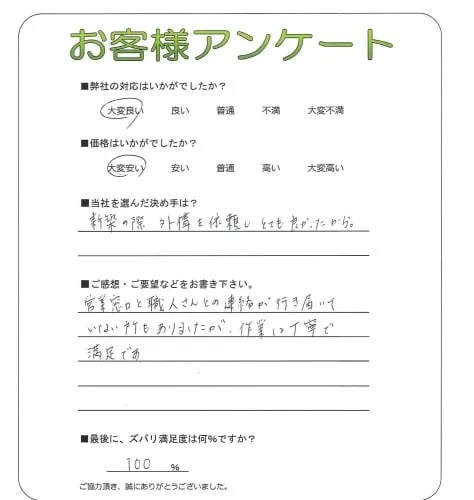 お客様アンケート
■弊社の対応はいかがでしたか？
大変良い 良い 普通 不満 大変不満
■価格はいかがでしたか？
大変安い 安い 普通 高い 大変高い
■当社を選んだ決め手は？
新築の際 外構を依頼し とても良かったから。
■ご感想・ご要望などをお書き下さい。
営業窓口と職人さんとの連絡が行き届いて
いない所もありましたが、作業は丁寧で
満足です
■最後に、ズバリ満足度は何％ですか？
100 %
ご協力頂き、誠にありがとうございました。